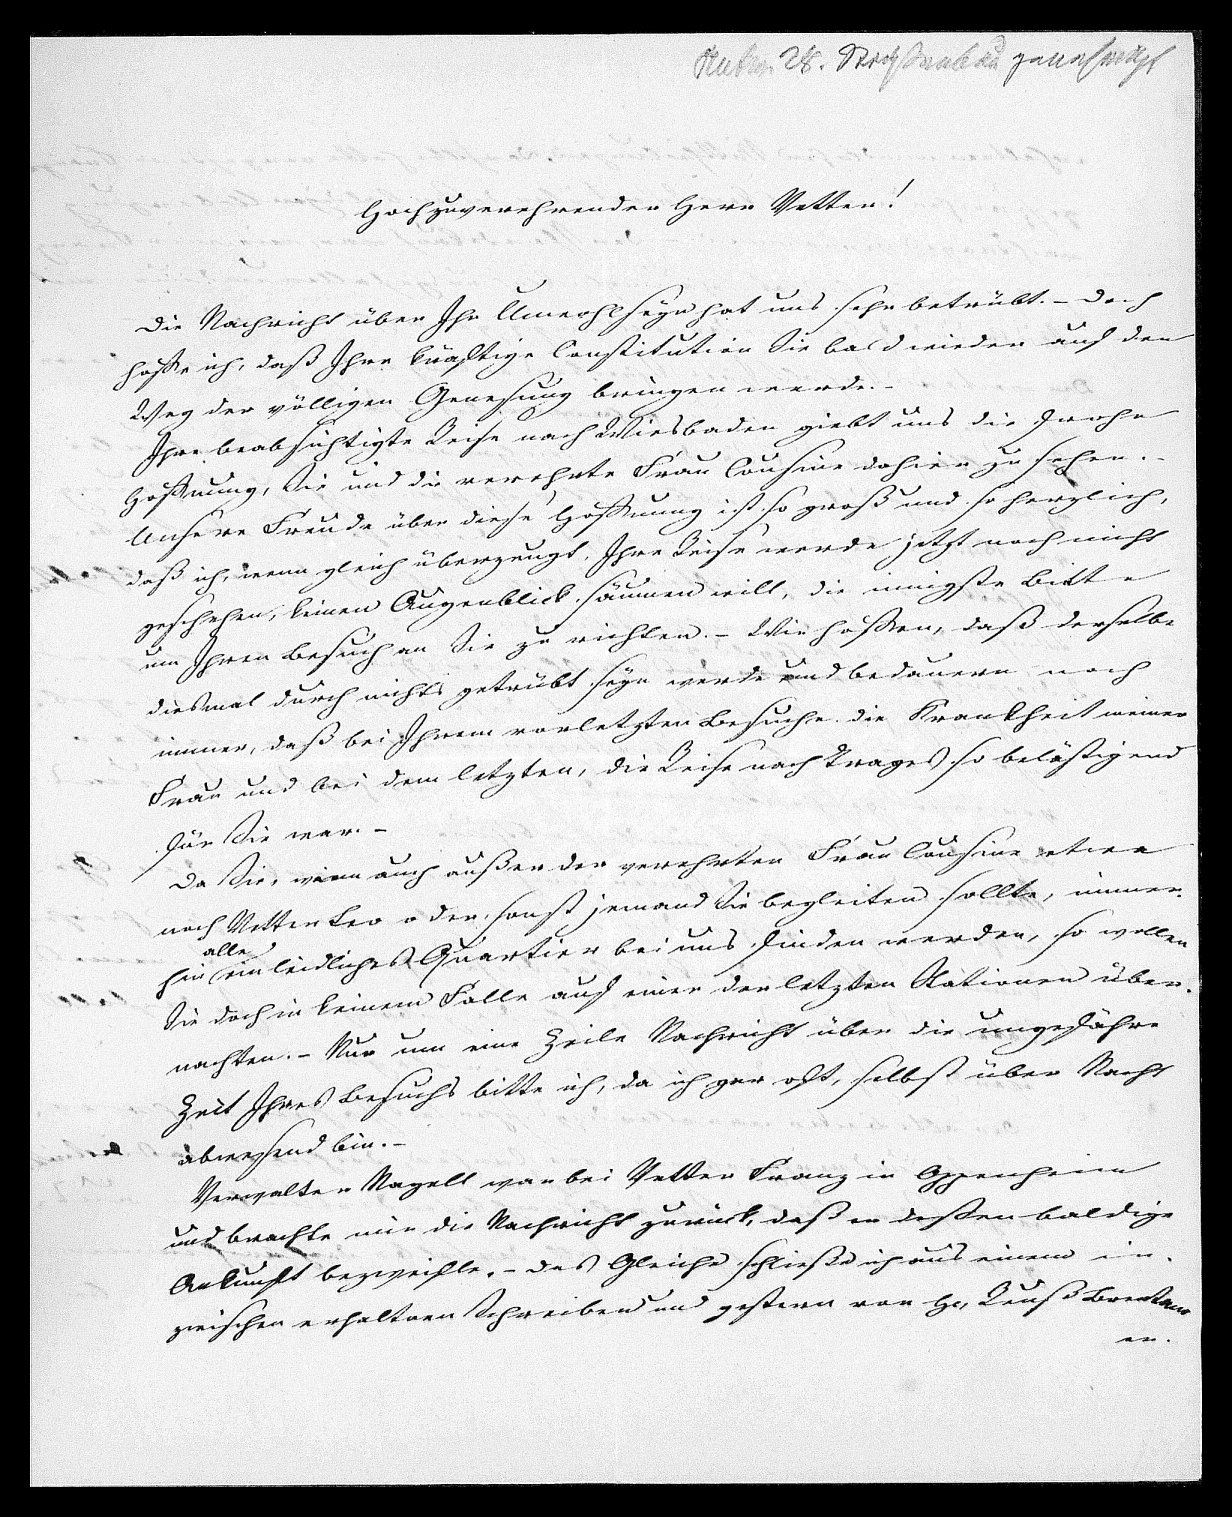 28.
Hochzuverehrender Herr Vetter!
Die Nachricht über Ihr Unwohlseyn hat uns sehr betrübt. – Doch
hoffe ich, daß Ihre kräftige Constitution Sie bald wieder auf den
Weg der völligen Genesung bringen werde. –
Ihre beabsichtigte Reise nach Wiesbaden giebt uns die frohe
Hoffnung, Sie und die verehrte Frau Cousine dahier zu sehen. –
Unsere Freude über diese Hoffnung ist so groß und so herzlich,
daß ich, wenn gleich überzeugt, Ihre Reise werde jetzt noch nicht
geschehen, keinen Augenblick säumen will, die innigste Bitte
um Ihren Besuch an Sie zu richten. – Wir hoffen, daß derselbe
diesmal durch nichts getrübt seyn werde und bedauern noch
immer, daß bei Ihrem vorletzten Besuche die Krankheit meiner
Frau und bei dem letzten, die Reise nach Trages so belästigend
für Sie war. –
Da Sie, wenn auch außer der verehrten Frau Cousine etwa
noch Vetter Leo oder sonst jemand Sie begleiten sollte, immer-
hin alle ein leidliches Quartier bei uns finden werden, so wollen
Sie doch in keinem Falle auf einer der letzten Stationen über-
nachten. – Nur um eine Zeile Nachricht über die ungefähre
Zeit Ihres Besuchs bitte ich, da ich gar oft, selbst über Nacht
abwesend bin. –
Verwalter Nagell war bei Vetter Franz in Oppenheim
und brachte mir die Nachricht zurück, daß er dessen baldige
Ankunft bezweifle. – Das Gleiche schließe ich aus einem in-
zwischen erhaltnen Schreiben und gestern von Hr. Reuß Brentano
er-